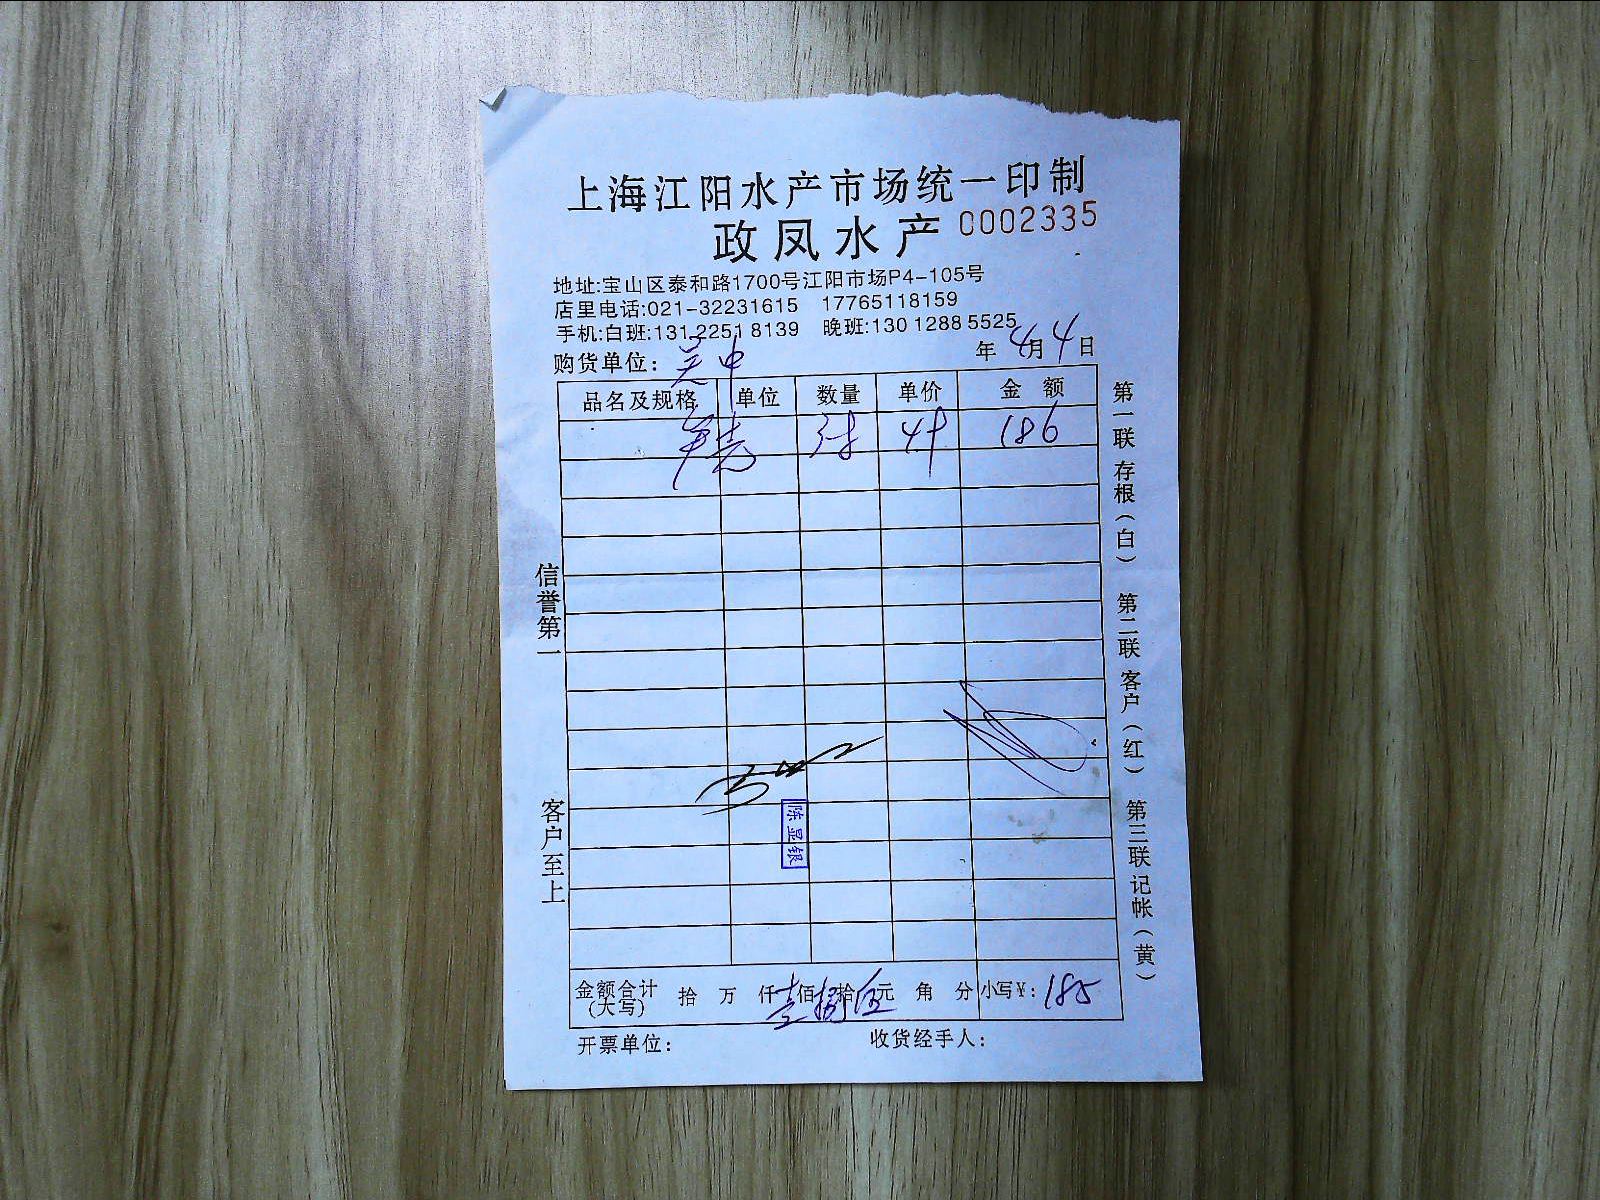 上海江阳水产市场统一印制
政凤水产 0002335
地址:宝山区泰和路1700号江阳市场P4-105号
店里电话:021-32231615 17765118159
手机:白班:131 2251 8139 晚班:130 1288 5525
购货单位: 吴中 年 4月 4日
品名及规格 单位 数量 单价 金额
186
信誉第一
客户至上
陈显银
第一联 存根(白) 第二联 客户(红) 第三联 记帐(黄)
金额合计(大写) 拾 万 仟 壹佰 捌拾 伍元 角 分 小写¥: 185
开票单位: 收货经手人: